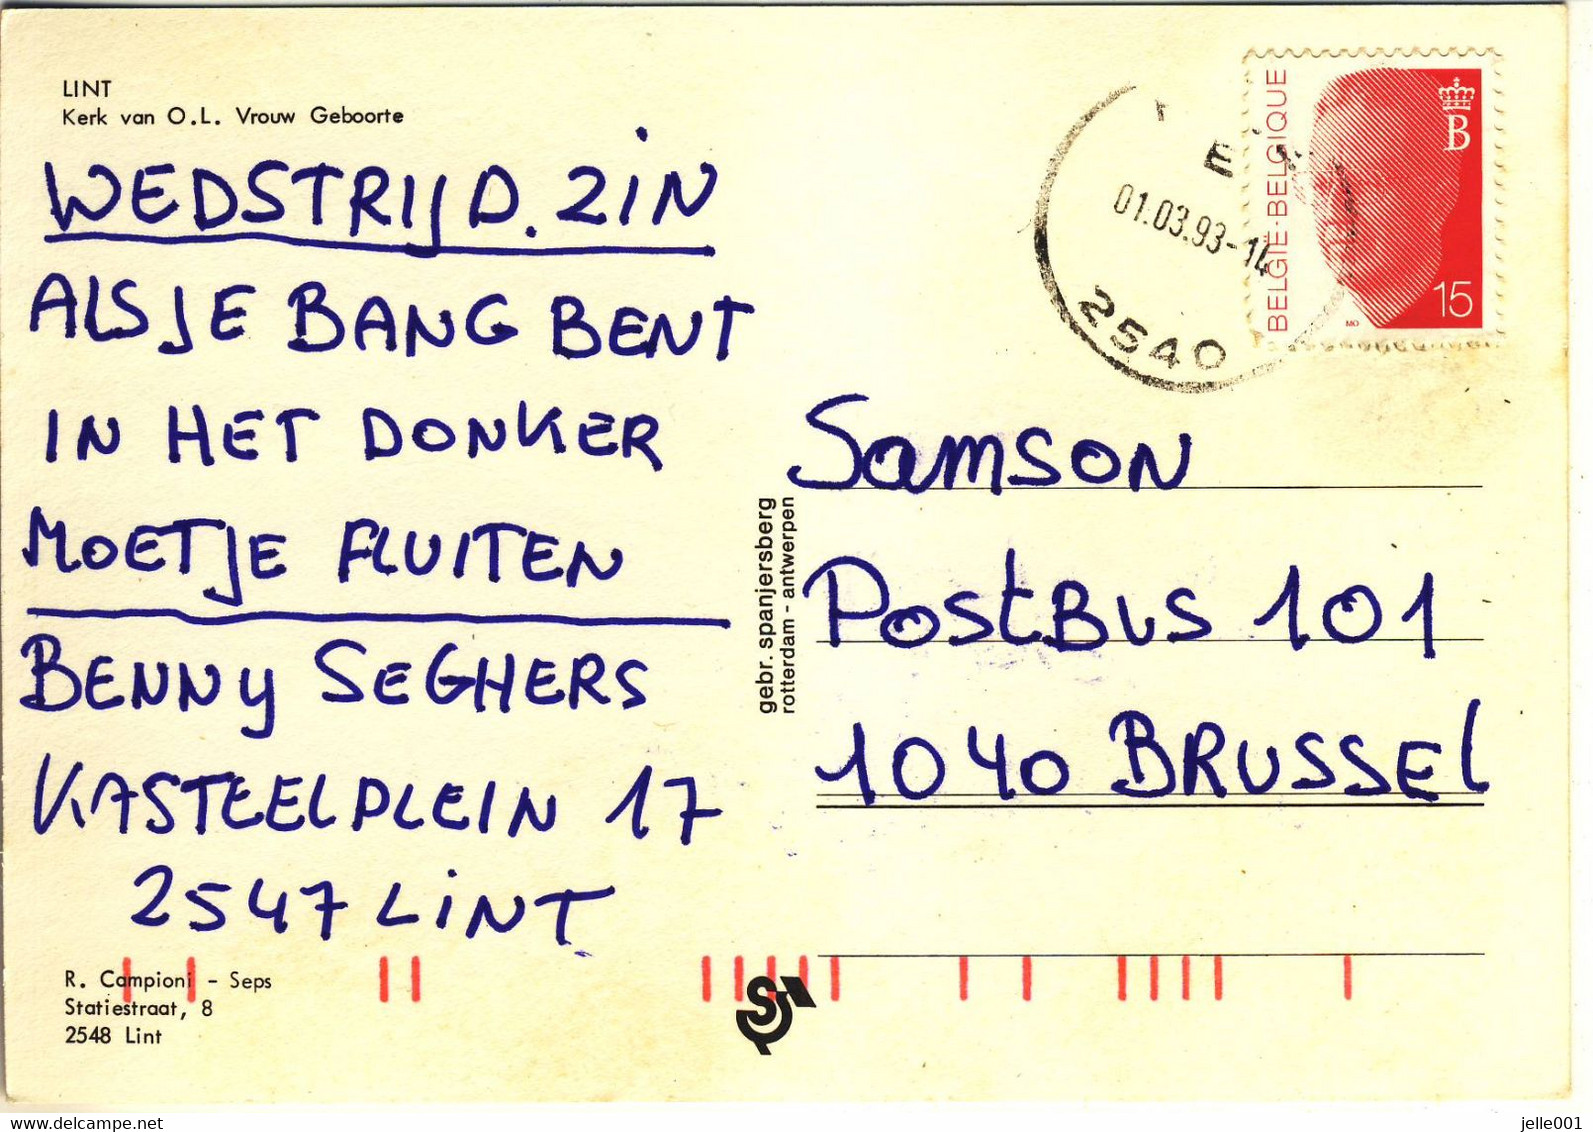 LINT
Kerk van O.L. Vrouw Geboorte
WEDSTRIJD. ZIN
ALS JE BANG BENT
IN HET DONKER
MOETJE FLUITEN
BENNY SEGHERS
KASTEELPLEIN 17
2547 LINT
R. Campioni - Seps
Statiestraat, 8
2548 Lint
gebr. spanjersberg
rotterdam - antwerpen
01.03.93-14
2540
BELGIË·BELGIQUE
B
15
MO
Samson
PostBUS 101
1040 BRUSSEL
delcampe.net
jelle001